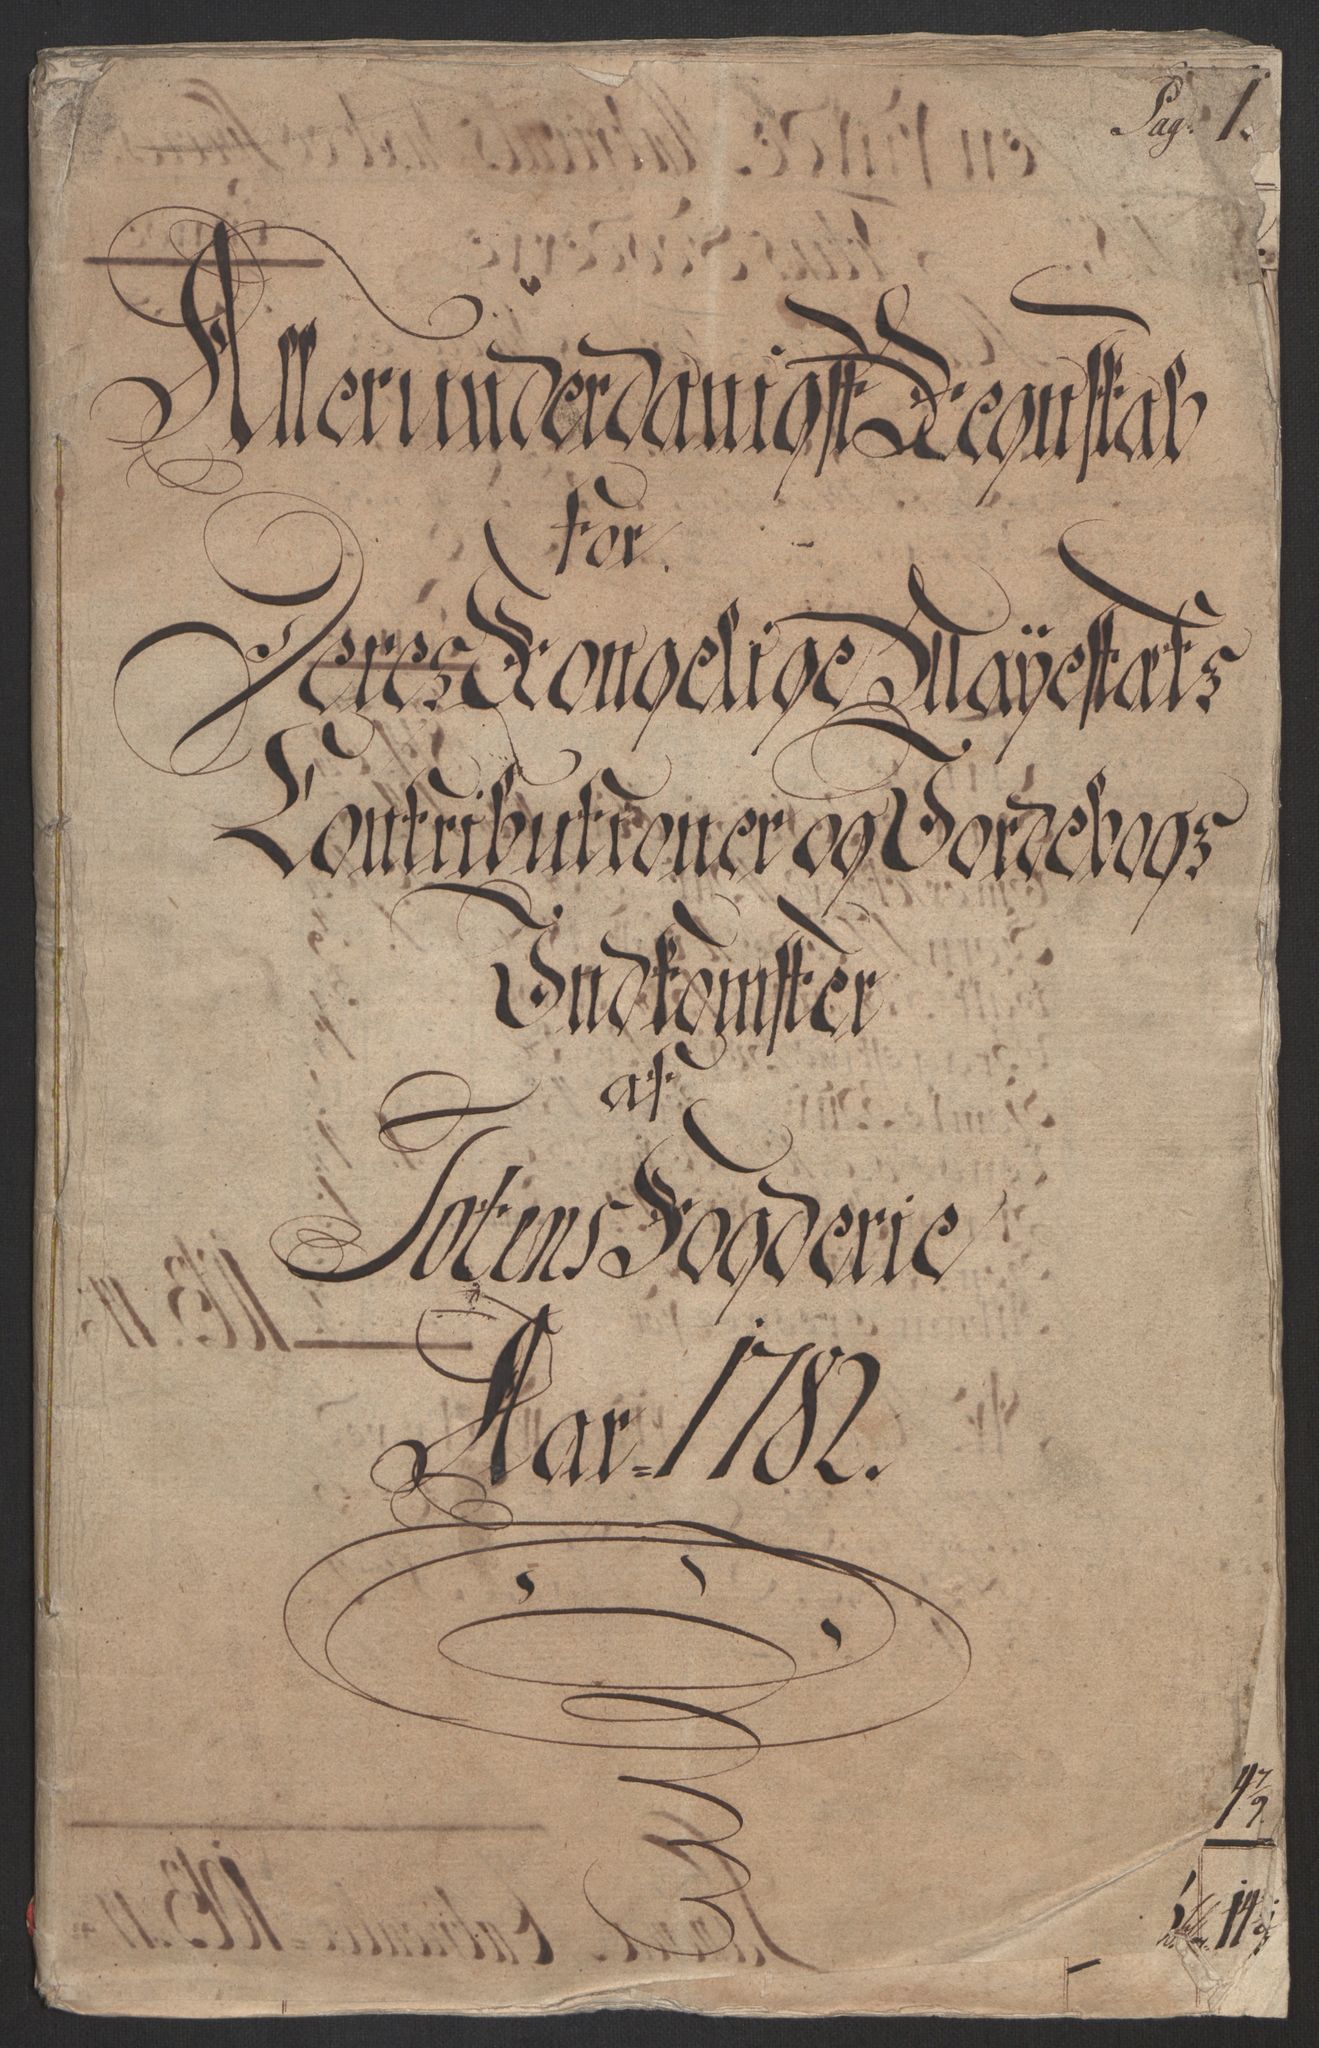 Pag. 1.
Allerunderdanigst Regnskab
for
Deres Kongelige Mayestæts
Contributioner og Jordebogs
Indkomster
af
Totens Fogderie
Aar = 1782.